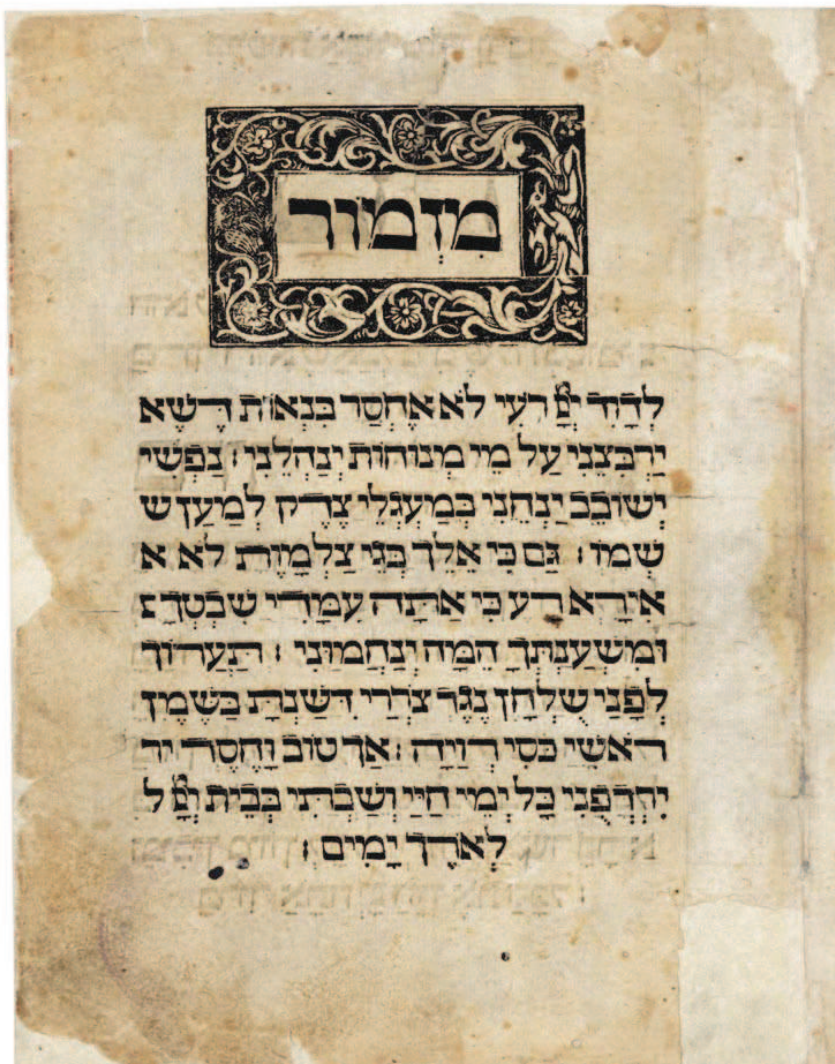 מִזְמוֹר
לְדָוִד יְיָ רֹעִי לֹא אֶחְסַר בִּנְאוֹת דֶּשֶׁא
יַרְבִּצֵנִי עַל מֵי מְנוּחוֹת יְנַהֲלֵנִי : נַפְשִׁי
יְשׁוֹבֵב יַנְחֵנִי בְּמַעְגְּלֵי צֶדֶק לְמַעַן ש
שְׁמוֹ : גַּם כִּי אֵלֵךְ בְּגֵי צַלְמָוֶת לֹא א
אִירָא רָע כִּי אַתָּה עִמָּדִי שִׁבְטְךָ
וּמִשְׁעַנְתְּךָ הֵמָּה יְנַחֲמוּנִי : תַּעֲרוֹךְ
לְפָנַי שֻׁלְחָן נֶגֶד צֹרְרַי דִּשַּׁנְתָּ בַשֶּׁמֶן
רֹאשִׁי כּוֹסִי רְוָיָה : אַךְ טוֹב וָחֶסֶד יר
יִרְדְּפֻנִי כָּל יְמֵי חַיַּי וְשַׁבְתִּי בְּבֵית יְיָ ל
לְאֹרֶךְ יָמִים :